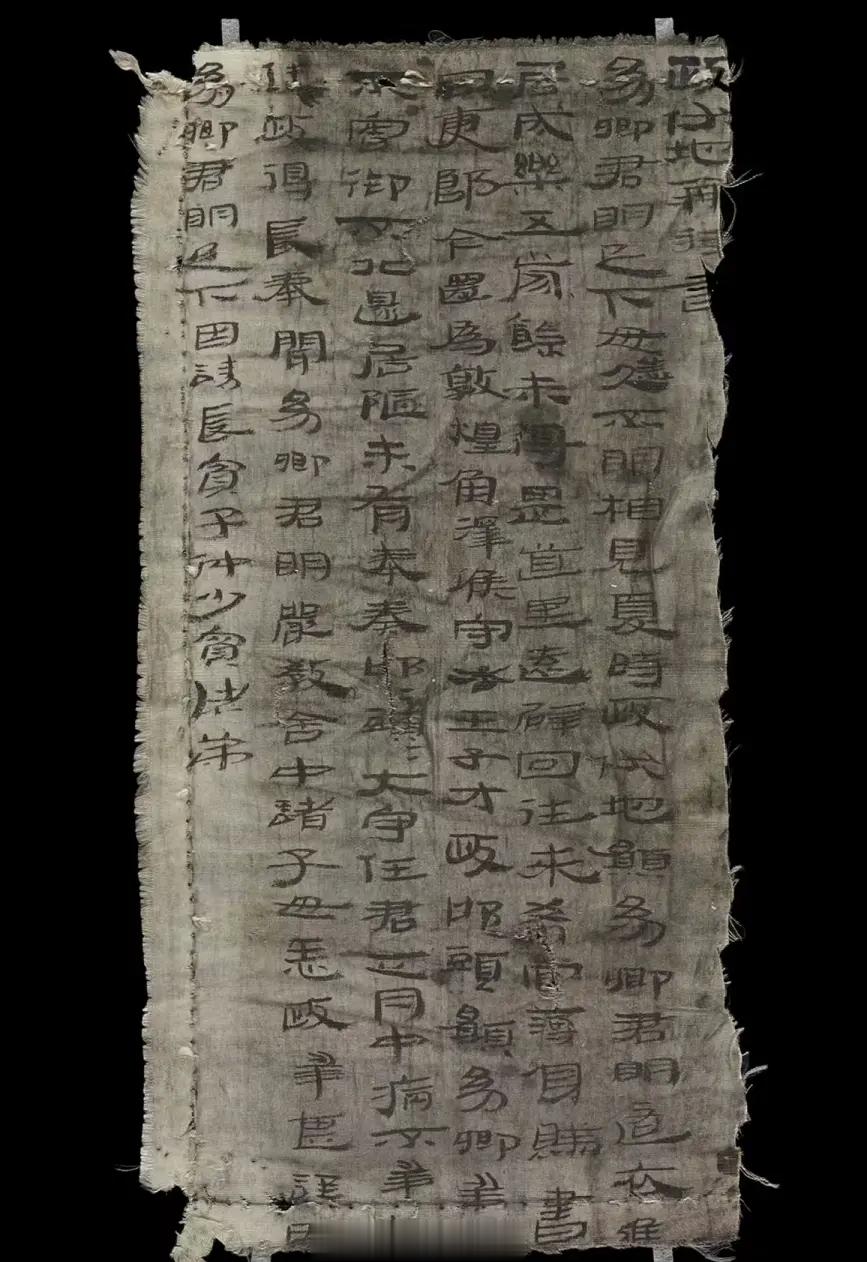 政伏地再拜言
幼卿君明足下毋恙久不明相見夏時政伏地願幼卿君明適衣進
居成樂五歲餘未得遷道里遠辟回往來希官薄身賤書
同吏郎今遷為敦煌魚澤候守丞王子方政叩頭願幼卿幸
不御不北邊居未有奉奉叩頭大守任君正月中病不幸
政得長奉聞幼卿君明嚴教舍中諸子毋恙政幸甚謹因
幼卿君明足下因請長賓子仲少賓諸弟